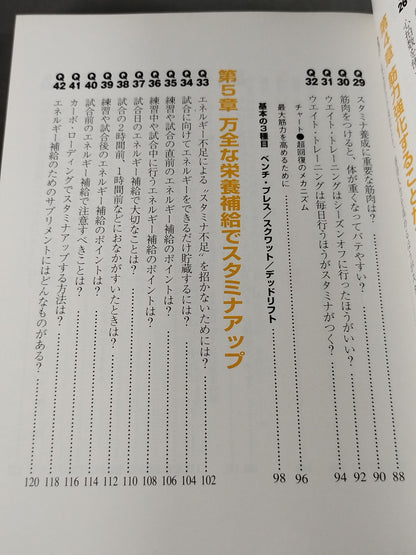 Q29 スタミナ養成に重要な筋肉は? 88
Q30 筋肉をつけると、体が重くなってバテやすい? 90
Q31 ウエイト・トレーニングはシーズンオフに行ったほうがいい? 92
Q32 ウエイト・トレーニングは毎日行うほうがスタミナがつく? 94
チャート●超回復のメカニズム 96
最大筋力を高めるために
基本の3種目 ベンチ・プレス/スクワット/デッドリフト 98
第5章 万全な栄養補給でスタミナアップ
Q33 エネルギー不足による“スタミナ不足”を招かないためには? 102
Q34 試合に向けてエネルギーをできるだけ貯蔵するには? 104
Q35 練習や試合の直前のエネルギー補給のポイントは? 106
Q36 練習中や試合中に行うエネルギー補給のポイントは? 108
Q37 試合日のエネルギー補給で大切なことは? 110
Q38 試合の2時間前、1時間前などにおなかがすいたときは? 112
Q39 練習や試合後のエネルギー補給のポイントは? 114
Q40 試合前のエネルギー補給で注意すべきことは? 116
Q41 カーボ・ローディングでスタミナアップする方法は? 118
Q42 エネルギー補給のためのサプリメントにはどんなものがある? 120